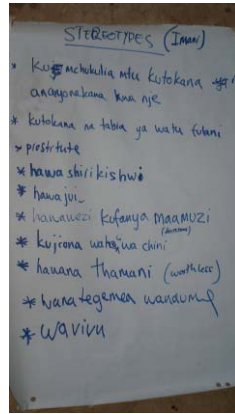 STEREOTYPES (Imani)
* Kumchukulia mtu kutokana
anavyonekana kwa nje
* kutokana na tabia ya watu fulani
* prostitute
* hawashirikishwi
* hawajui
* hawawezi kufanya maamuzi
(decisions)
* kujiona wa chini
* hawana thamani (worthless)
* wanategemea wanaume
* wavivu